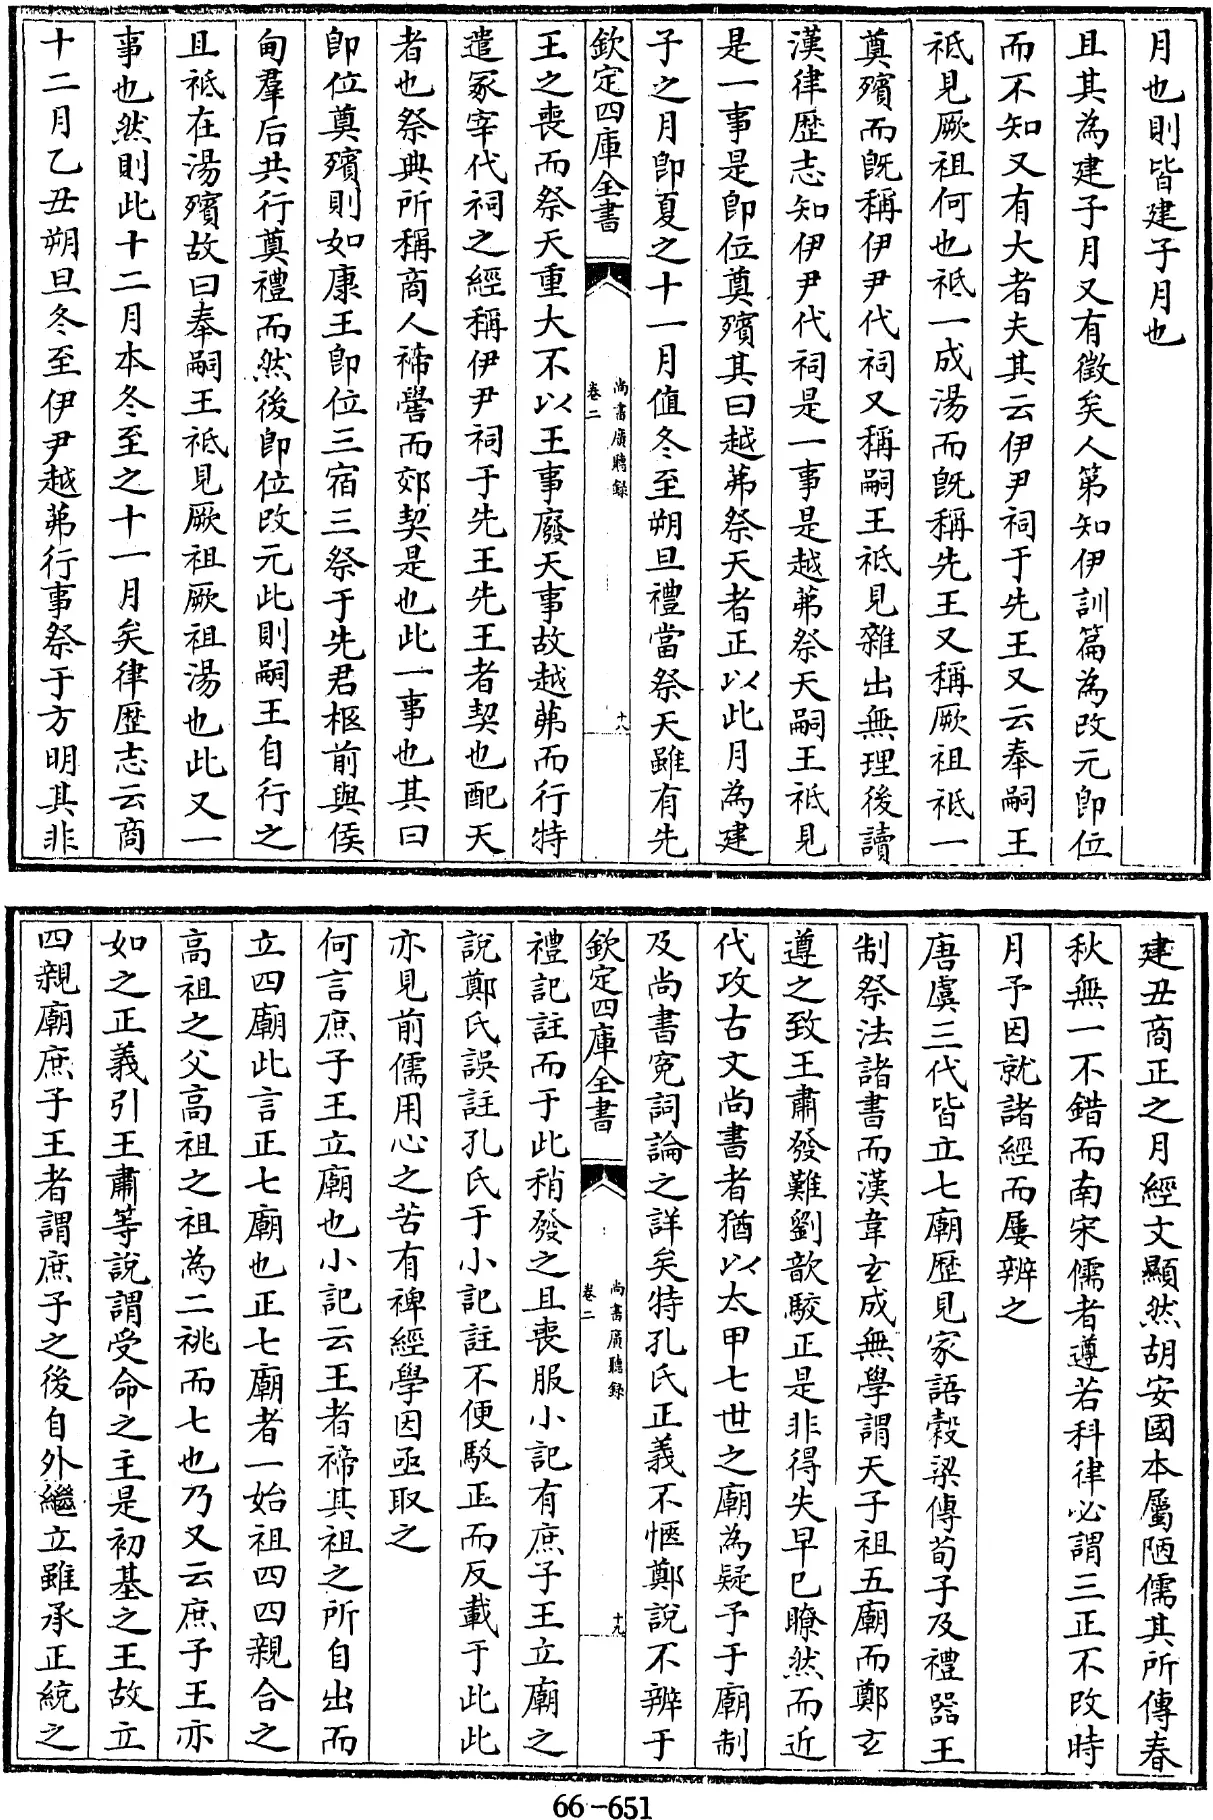 月也則皆建子月也
且其為建子月又有徵矣人第知伊訓篇為改元卽位
而不知又有大者夫其云伊尹祠于先王又云奉嗣王
祗見厥祖何也祗一成湯而旣稱先王又稱厥祖祗一
奠殯而旣稱伊尹代祠又稱嗣王祗見雜出無理後讀
漢律歴志知伊尹代祠是一事是越茀祭天嗣王祗見
是一事是卽位奠殯其曰越茀祭天者正以此月為建
子之月卽夏之十一月值冬至朔旦禮當祭天雖有先
欽定四庫全書
尚書廣聽錄
卷二
十八
王之喪而祭天重大不以王事廢天事故越茀而行特
遣冢宰代祠之經稱伊尹祠于先王先王者契也配天
者也祭典所稱商人禘嚳而郊契是也此一事也其曰
卽位奠殯則如康王卽位三宿三祭于先君柩前與侯
甸羣后共行奠禮而然後卽位改元此則嗣王自行之
且祗在湯殯故曰奉嗣王祗見厥祖厥祖湯也此又一
事也然則此十二月本冬至之十一月矣律歴志云商
十二月乙丑朔旦冬至伊尹越茀行事祭于方明其非
建丑商正之月經文顯然胡安國本屬陋儒其所傳春
秋無一不錯而南宋儒者遵若科律必謂三正不改時
月予因就諸經而屢辨之
唐虞三代皆立七廟歴見家語穀梁傳荀子及禮器王
制祭法諸書而漢韋玄成無學謂天子祖五廟而鄭玄
遵之致王肅發難劉歆駮正是非得失早已瞭然而近
代攻古文尚書者猶以太甲七世之廟為疑予于廟制
及尚書寃詞論之詳矣特孔氏正義不愜鄭說不辨于
欽定四庫全書
尚書廣聽錄
卷二
十九
禮記註而于此稍發之且喪服小記有庶子王立廟之
說鄭氏誤註孔氏于小記註不便駁正而反載于此此
亦見前儒用心之苦有裨經學因亟取之
何言庶子王立廟也小記云王者禘其祖之所自出而
立四廟此言正七廟也正七廟者一始祖四四親合之
高祖之父高祖之祖為二祧而七也乃又云庶子王亦
如之正義引王肅等說謂受命之主是初基之王故立
四親廟庶子王者謂庶子之後自外繼立雖承正統之
66-651